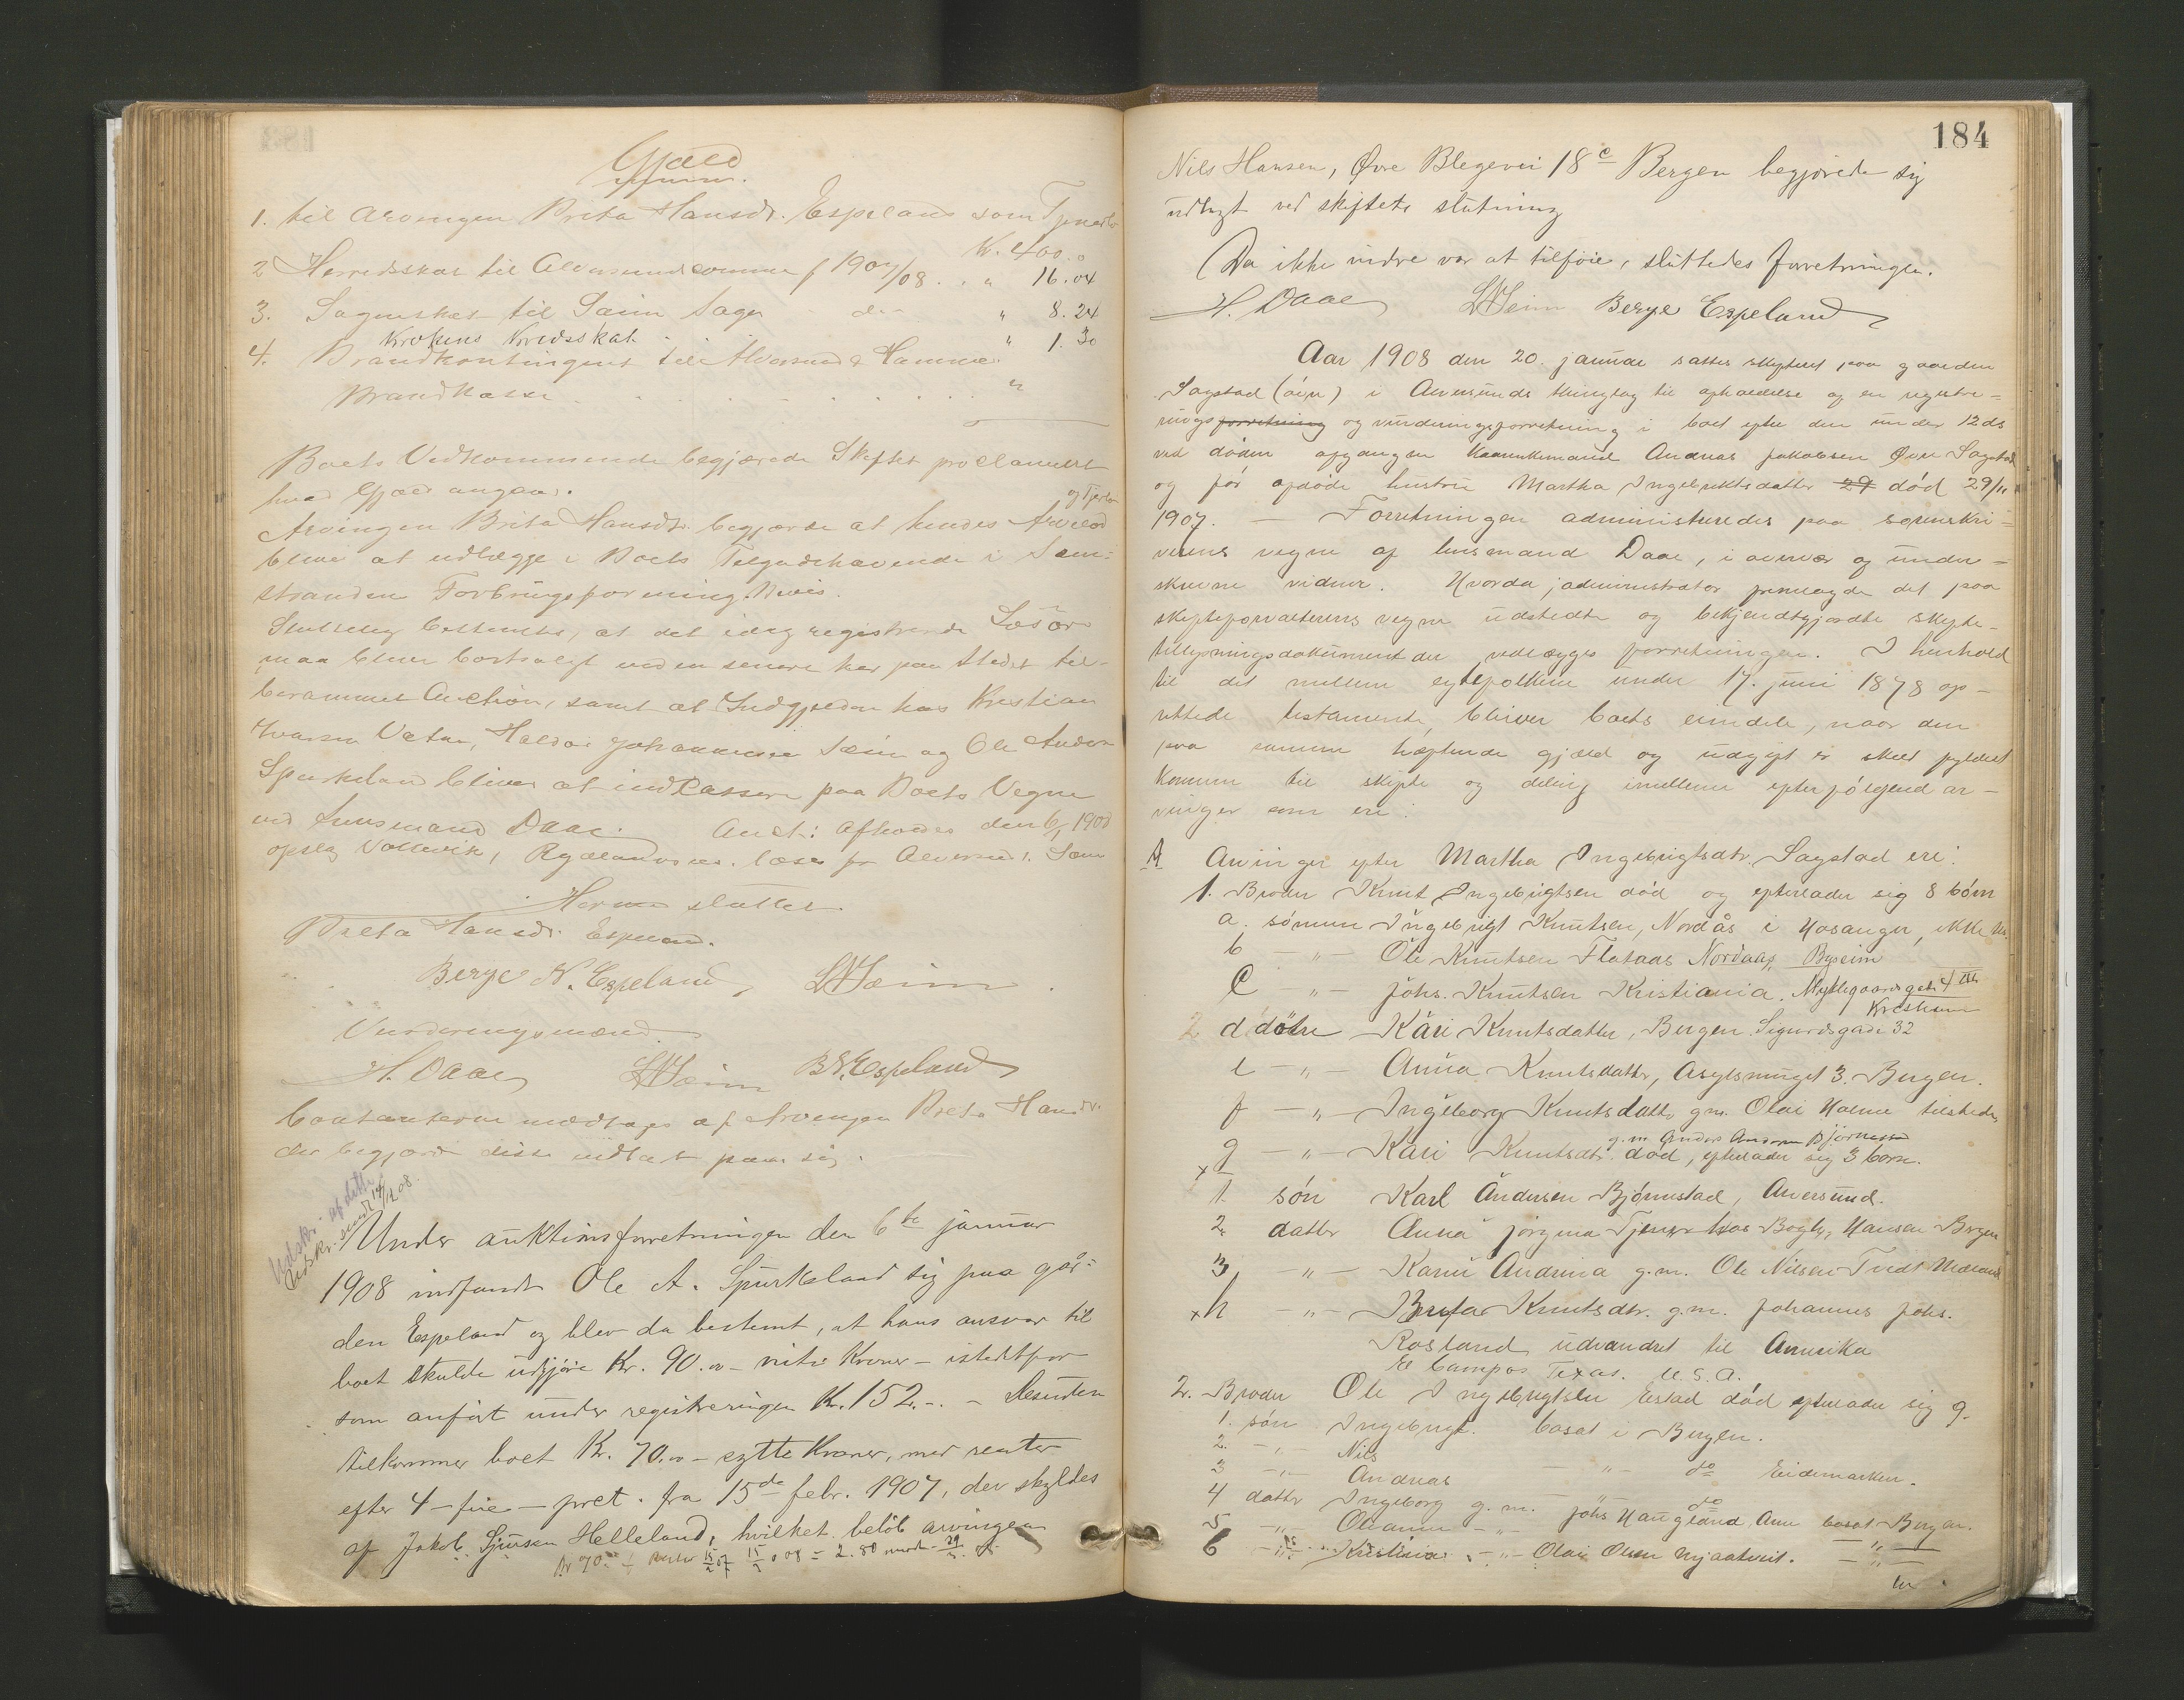 Gjæld
1. til arvingen Brita Hansdr. Espeland som Tjeneløn
Kr. 400.0
2 Herredsskat til Alversund comune f 1907/08 . . " 16.04
3. Sogneskat til Sæim Sogn do " 8.24
Krokens Kredsskat . " 1.30
4. Brandkontingent til Alversund & Hammer
Brandkasse . . . . . . . . "
Boets Vedkommende begjærede Skiftet proclameret
hvad Gjæld angaar.
og Tjenløn
Arvingen Brita Hansdr. begjærede at hendes Arvelod
bliver at udlægge i Boets Tilgodehavende i Sæm-
stranden Forbrugsforening
Sluttelig bestemtes, at det idag registrerede Løsøre
maa bliver bortsolgt ved en senere her paa Stedet til-
berammet Auction, samt at Indgjælden hos Kristian
Ivarsen Vatne, Haldor Johannessen Sæim og Ole Anders
Spurkeland bliver at indkassere paa Boets Vegne
ved Lensmand Daae. Auct: afholdes den 6/1 1908
opslag Vollevik, Rydlandsvaag. læses for Alversund & Sæm
Herved sluttet.
Brita Hansdr. Espeland.
Berge N. Espeland, LHSæim.
Vurderingsmænd
H. Daae LHSæim B N. Espeland
Contanterne modtages af Arvingen Brita Hansdr.
der begjærede disse udlagt paa sig.
Udskr. af dette
Udskr. sendt 14/1 08.
Under auktionsforretningen den 6te januar
1908 indfandt Ole A. Spurkeland sig paa går-
den Espeland og blev da bestemt, at hans ansvar til
boet skulde udgjøre Kr. 90.00 – nitti Kroner – istedetfor
som anført under registreringen Kr. 152.–. – Desuden
tilkommer boet Kr. 70.00 – sytti Kroner, med renter
efter 4 – fire – prct. fra 15de febr. 1907, der skyldes
af Jakob Sjursen Helleland, hvilket beløb arvingen
Kr 70.00 renter 15/2 07 15/2 08 = 2.80
184
Nils Hansen, Øvre Blegevei 18c Bergen begjærede sig
udlagt ved skiftets slutning
Da ikke vidre var at tilføie, sluttedes forretningen.
H. Daae LHSeim Berge Espeland
Aar 1908 den 20. januar sattes skifteret paa gaarden
Sagstad (øvre) i Alversunds thinglag til afholdelse af en registre-
rings forretning og vurderingsforretning i boet efter den under 12 ds
ved døden afgangne Kaarnkemand Andreas Jakobsen Øvre Sagstad
og før afdøde hustru Martha Ingebriktsdatter 29 død 29/11
1907. – Forretningen administreredes paa sorenskri-
verens vegne af lensmand Daae, i overvær og under-
skrevne vidner. Hvorda, administrator fremlagde det paa
skifteforvalterens vegne udstedte og bekjendtgjordte skifte-
tillysningsdokument der vedlægges forretningen. I henhold
til det mellem egtefolkene under 17. juni 1878 op-
rettede testamente, bliver boets eiendele, naar den
paa samme hæftende gjæld og udgift er skeet fyldest
komme til skifte og deling imellem efterfølgende ar-
vinger som ere:
A Arvinger efter Martha Ingebrigtsdtr. Sagstad ere:
1. Broder Knut Ingebrigtsen død og efterlader sig 8 børn
a. sønnen Ingebrigt Knutsen, Nordås i Hosanger, ikke tils.
b – " – Ole Knutsen Flataas Nordaas, Byseim
C – " – Johs. Knutsen Kristiania. Møllegaardsgate 4 IIIte
Kristiania
2 d døtre Kari Knutsdatter, Bergen Sigurdsgade 32
e – " – Anna Knutsdatter, Asylsmuget 3. Bergen.
f – " – Ingeborg Knutsdatter, gm. Olai Holme tilstede
g.m. Anders Andersen Bjørnestad
x g – " – Kari Knutsdtr. død, efterlader sig 3 børn.
1. søn Karl Andersen Bjørnestad, Alversund.
2. datter Anna Jørgina Tjener hos Bogtr, Hansen Bergen
3 – " – Karen Andrina g.m. Ole Nilsen Tvedt Midland
x h – " – Brita Knutsdtr. g.m. Johannes Johs.
Rosland udvandret til Amerika
El Campos Texas. U.S.A.
2. Broder Ole Ingebrigtsen Eistad død efterlader sig 9.
1. søn Ingebrigt. bosat i Bergen.
2. – " – Nils
3 – " – Andreas – " – do Eidemarken.
4 datter Ingeborg g.m. do
5 – " – Oleanne – " – Johs Haugland, Aune bosat Bergen.
6 – " – Kristina – " – Olai Olsen Nyaatveit. – " –